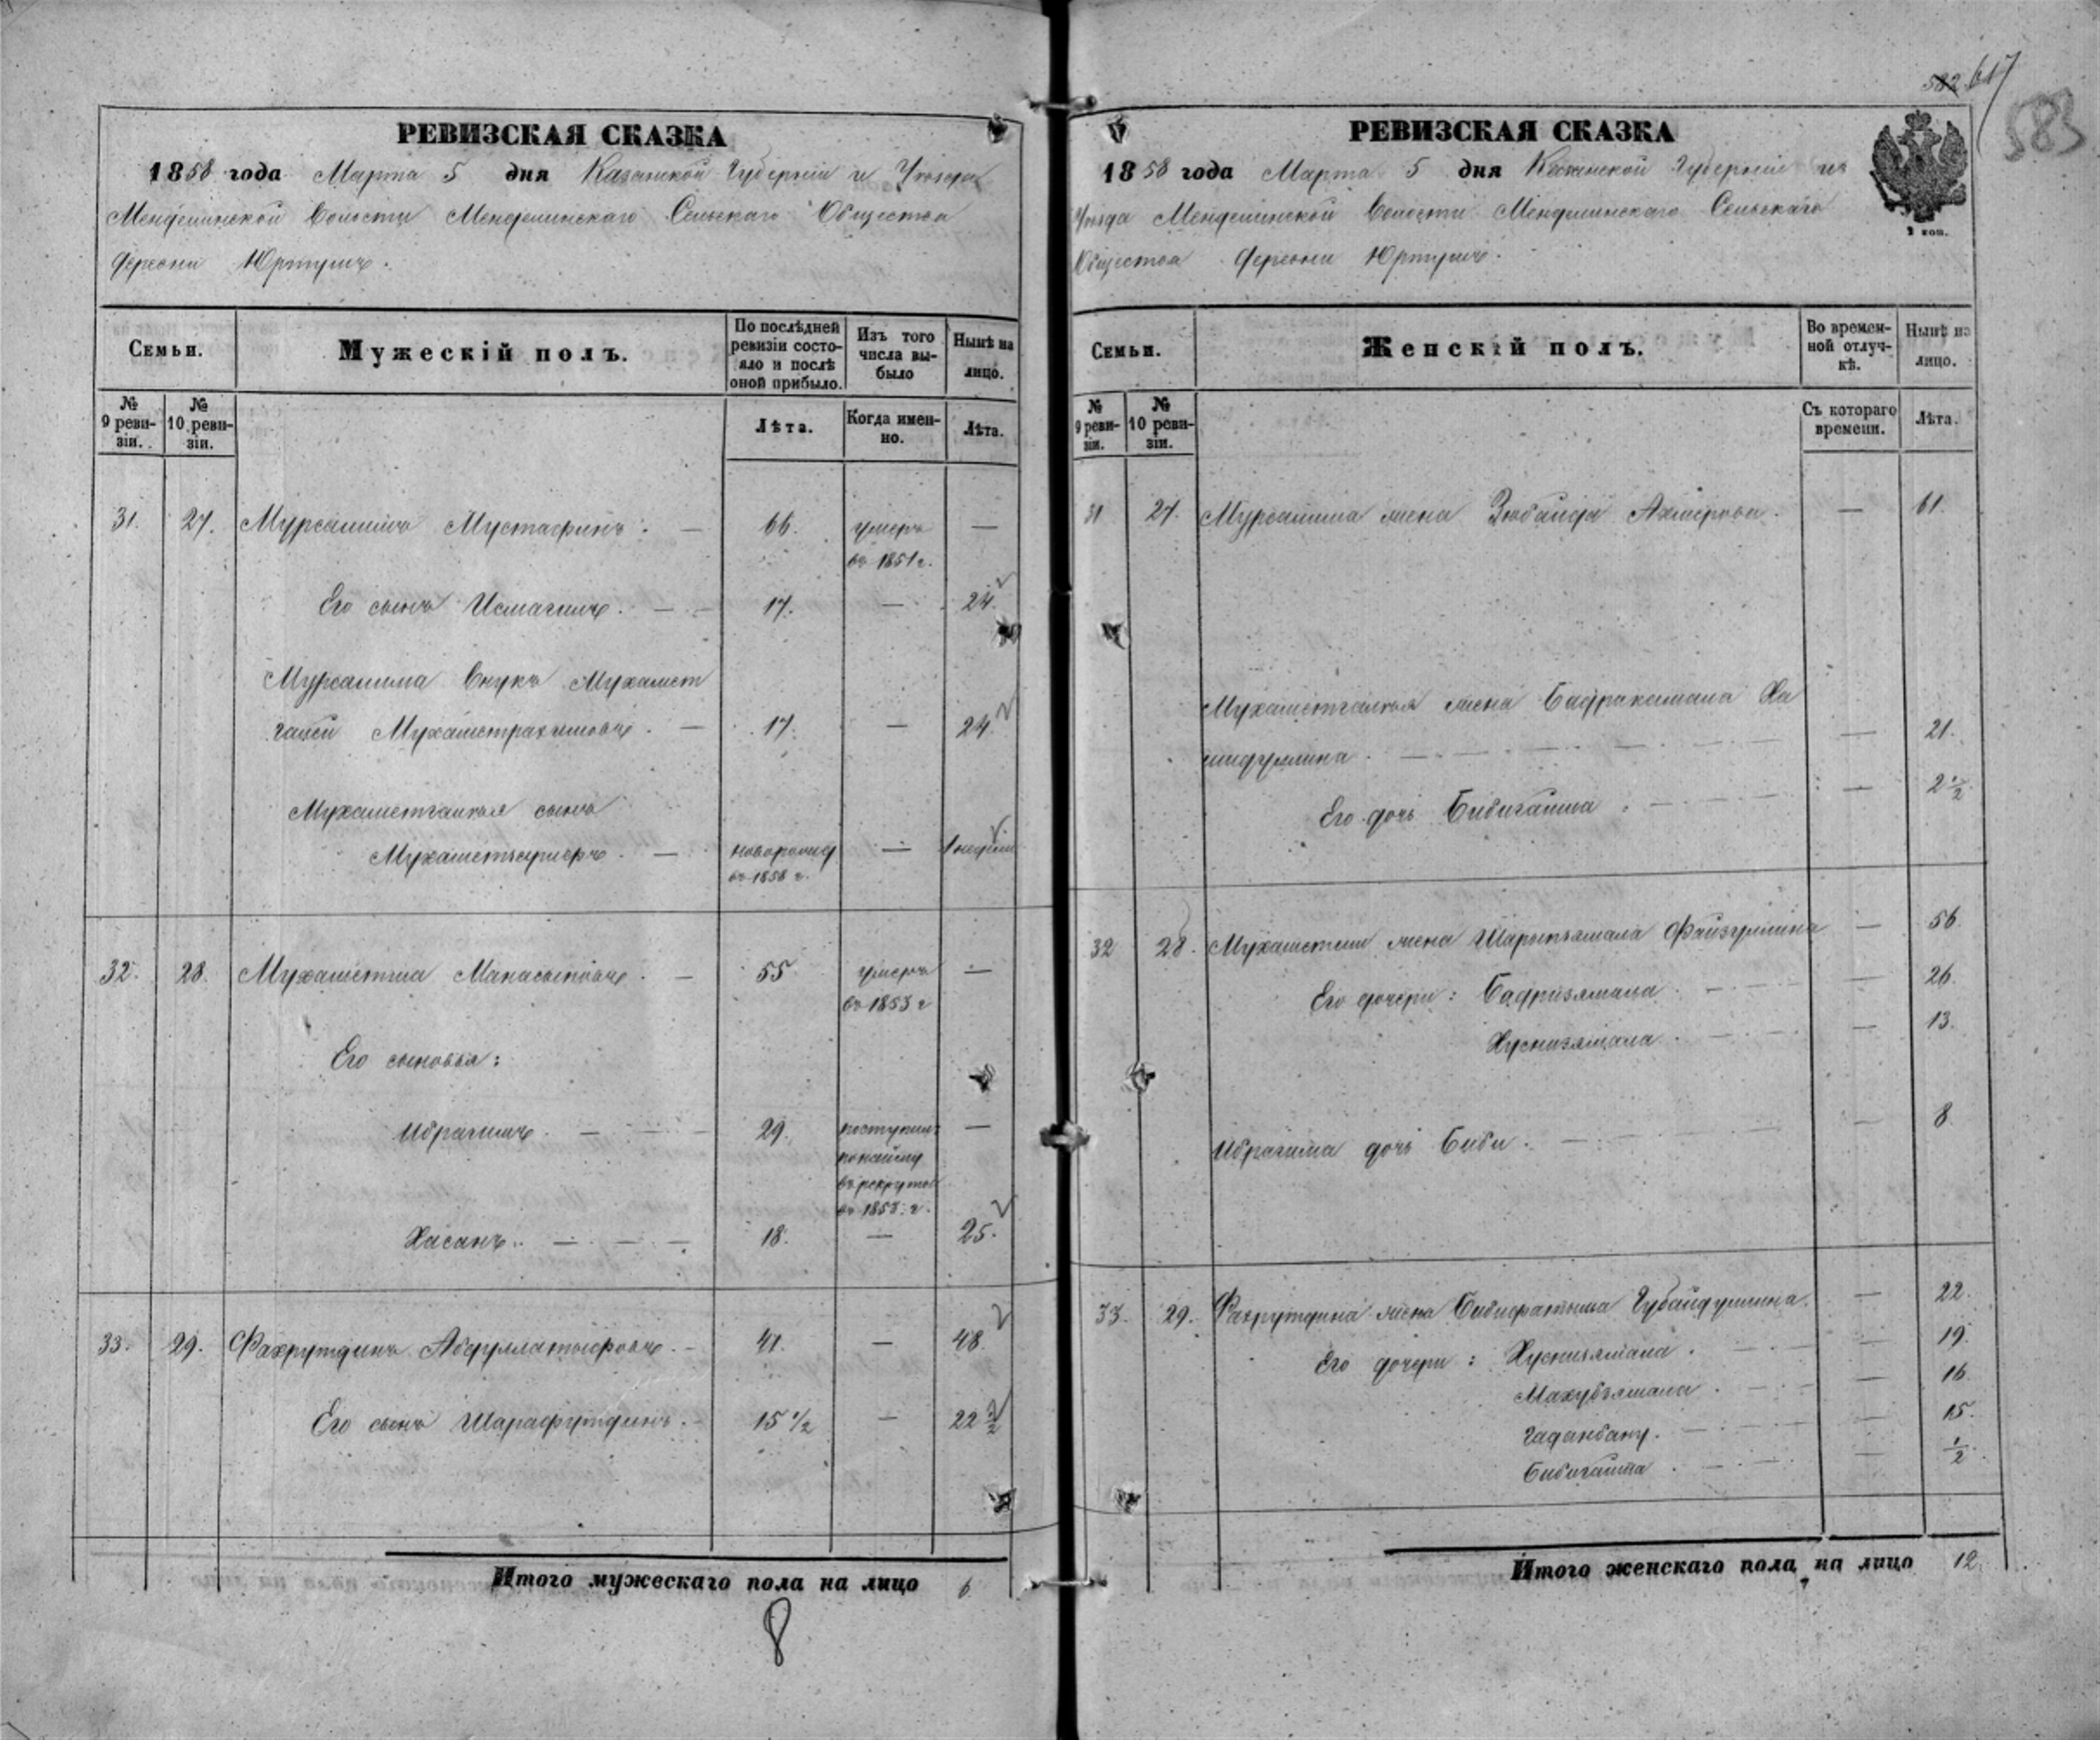 582 617
583
РЕВИЗСКАЯ СКАЗКА
1858 года Марта 5 дня Казанской Губерніи и Уѣзда
Менделинской Волости Менделинскаго Сельскаго Общества
деревни Юртушъ.
Семьи.
Мужескій полъ.
По послѣдней ревизіи состояло и послѣ оной прибыло.
Изъ того числа выбыло
Нынѣ на лицо.
№ 9 ревизіи.
№ 10 ревизіи.
Лѣта.
Когда именно.
Лѣта.
31. 27. Мурсалимъ Мустафинъ. — 66. умеръ —
въ 1851 г.
Его сынъ Исмагилъ. — 17. — 24.
Мурсалима внукъ Мухамет
галей Мухаметрахимовъ. — 17. — 24.
Мухаметгалея сынъ
— новорожд — 1 недѣли
въ 1858 г.
32. 28. Мухаметша Манасыповъ. — 55 умеръ —
въ 1853 г
Его сыновья:
Ибрагимъ. — 29. поступилъ —
по найму
въ рекруты
въ 1853. г.
Хасанъ. — 18. — 25.
33. 29. Фахрутдинъ Абдуллатыфовъ. — 41. — 48.
Его сынъ Шарафутдинъ. — 15 1/2 — 22 1/2
Итого мужескаго пола на лицо 6
8
РЕВИЗСКАЯ СКАЗКА
1858 года Марта 5 дня Казанской Губерніи и
Уѣзда Менделинской Волости Менделинскаго Сельскаго
Общества деревни Юртушъ.
2 коп.
Семьи.
Женскій полъ.
Во временной отлучкѣ.
Нынѣ на лицо.
№ 9 ревизіи.
№ 10 ревизіи.
Съ котораго времени.
Лѣта.
31 27. Мурсалима жена Зюбайда Ахмерова. — 61.
Мухаметгалея жена Бадракамала Ха
— 21.
Его дочь Бибигайша. — 2 1/2
32 28. Мухаметши жена Шарыпъямала Файзуллина — 56.
Его дочери: Бадризямала. — 26.
Хуснизямала. — 13.
Ибрагима дочь Биби. — 8.
33. 29. Фахрутдина жена Бибифатыма Губайдуллина. — 22.
Его дочери: Хуснизямала. — 19.
Махубъямала. — 16.
— 15.
Бибигайша. — 1/2
Итого женскаго пола на лицо 12.